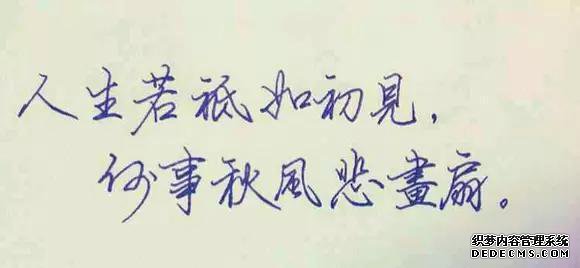 人生若祗如初見，
何事秋風悲畫扇。
织梦内容管理系统
DEDECMS.COM